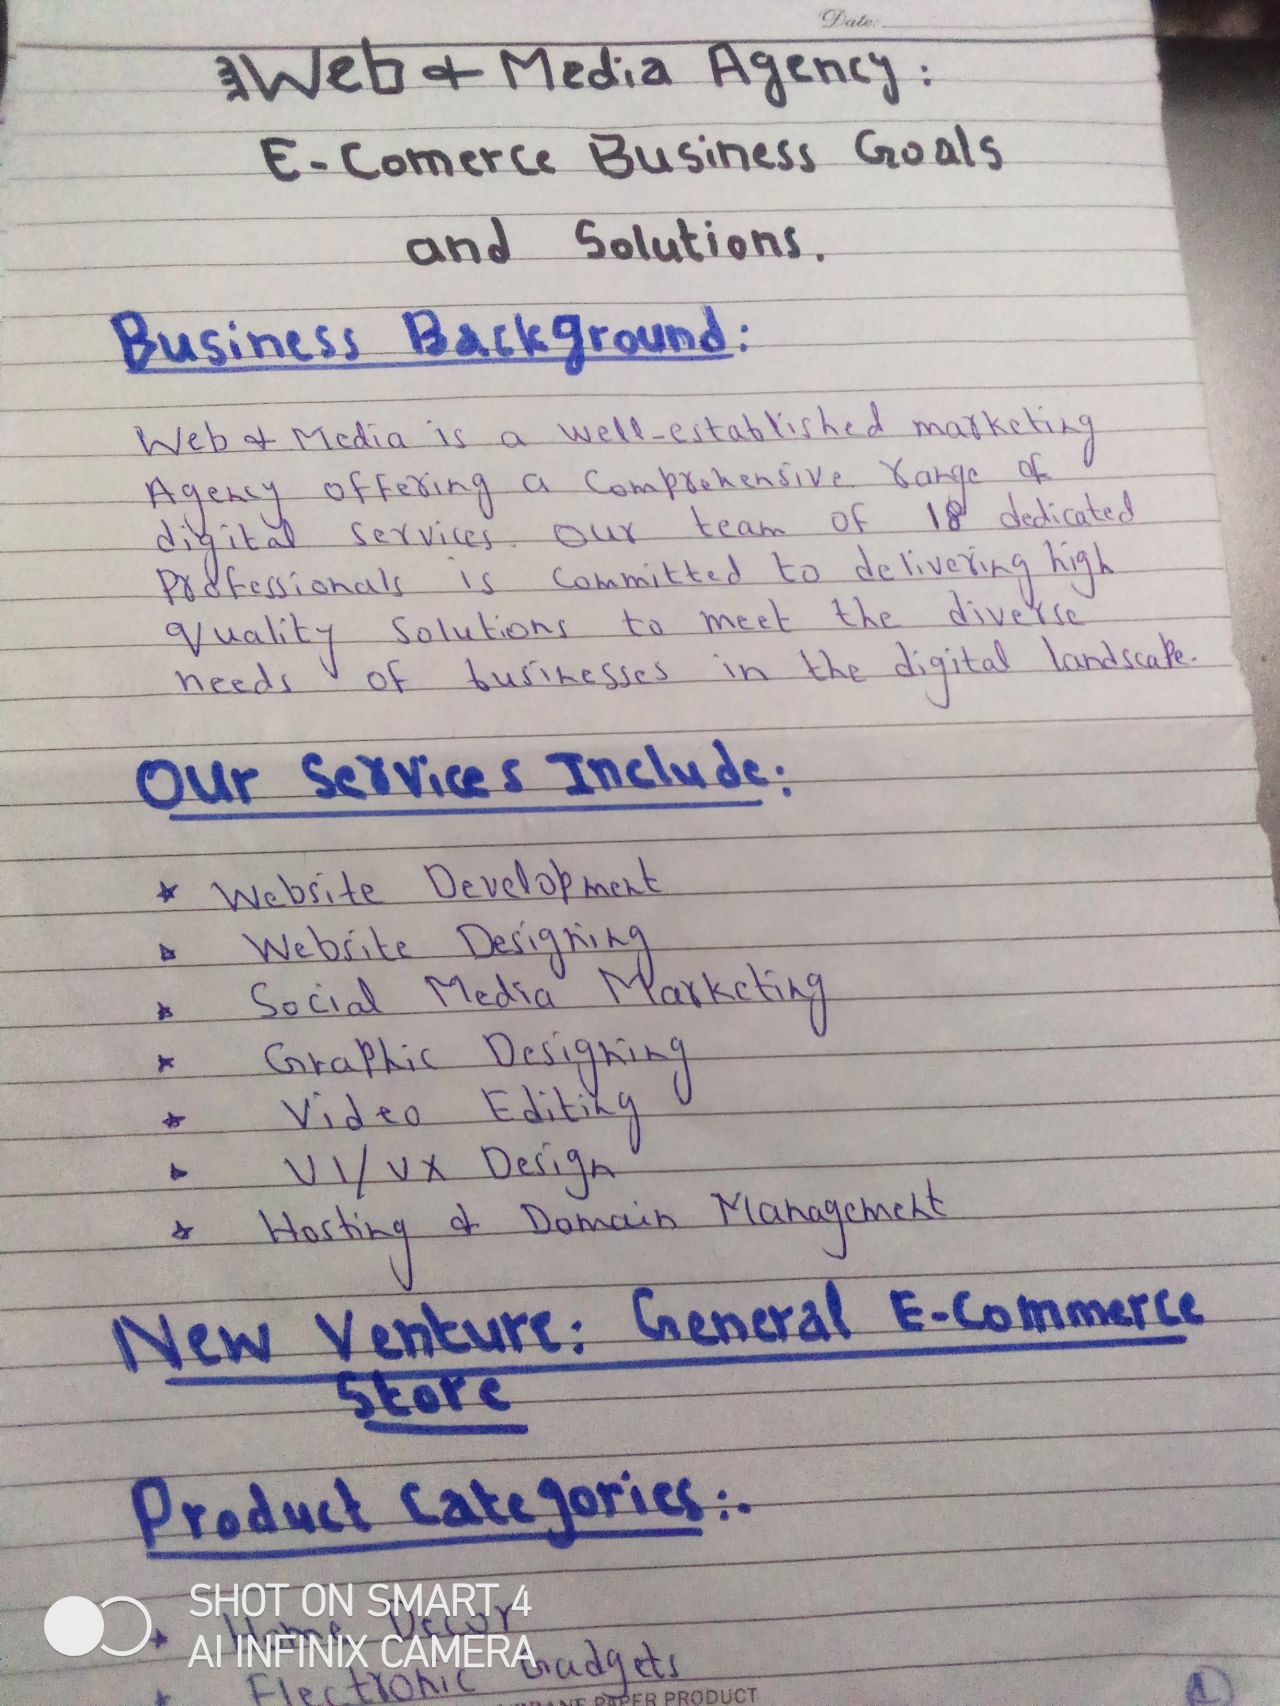 Date:
Web & Media Agency:
E-Comerce Business Goals
and Solutions.
Business Background:
Web & Media is a well-established marketing
Agency offering a Comprehensive range of
digital services. Our team of 18 dedicated
Professionals is committed to delivering high
quality Solutions to meet the diverse
needs of businesses in the digital landscape.
Our Services Include:
* Website Development
* Website Designing
* Social Media Marketing
* Graphic Designing
* Video Editing
* UI/UX Design
* Hosting & Domain Management
New Venture: General E-Commerce
Store
Product Categories:.
* Home Decor
* Electronic Gadgets
SHOT ON SMART 4
AI INFINIX CAMERA
PAPER PRODUCT
1